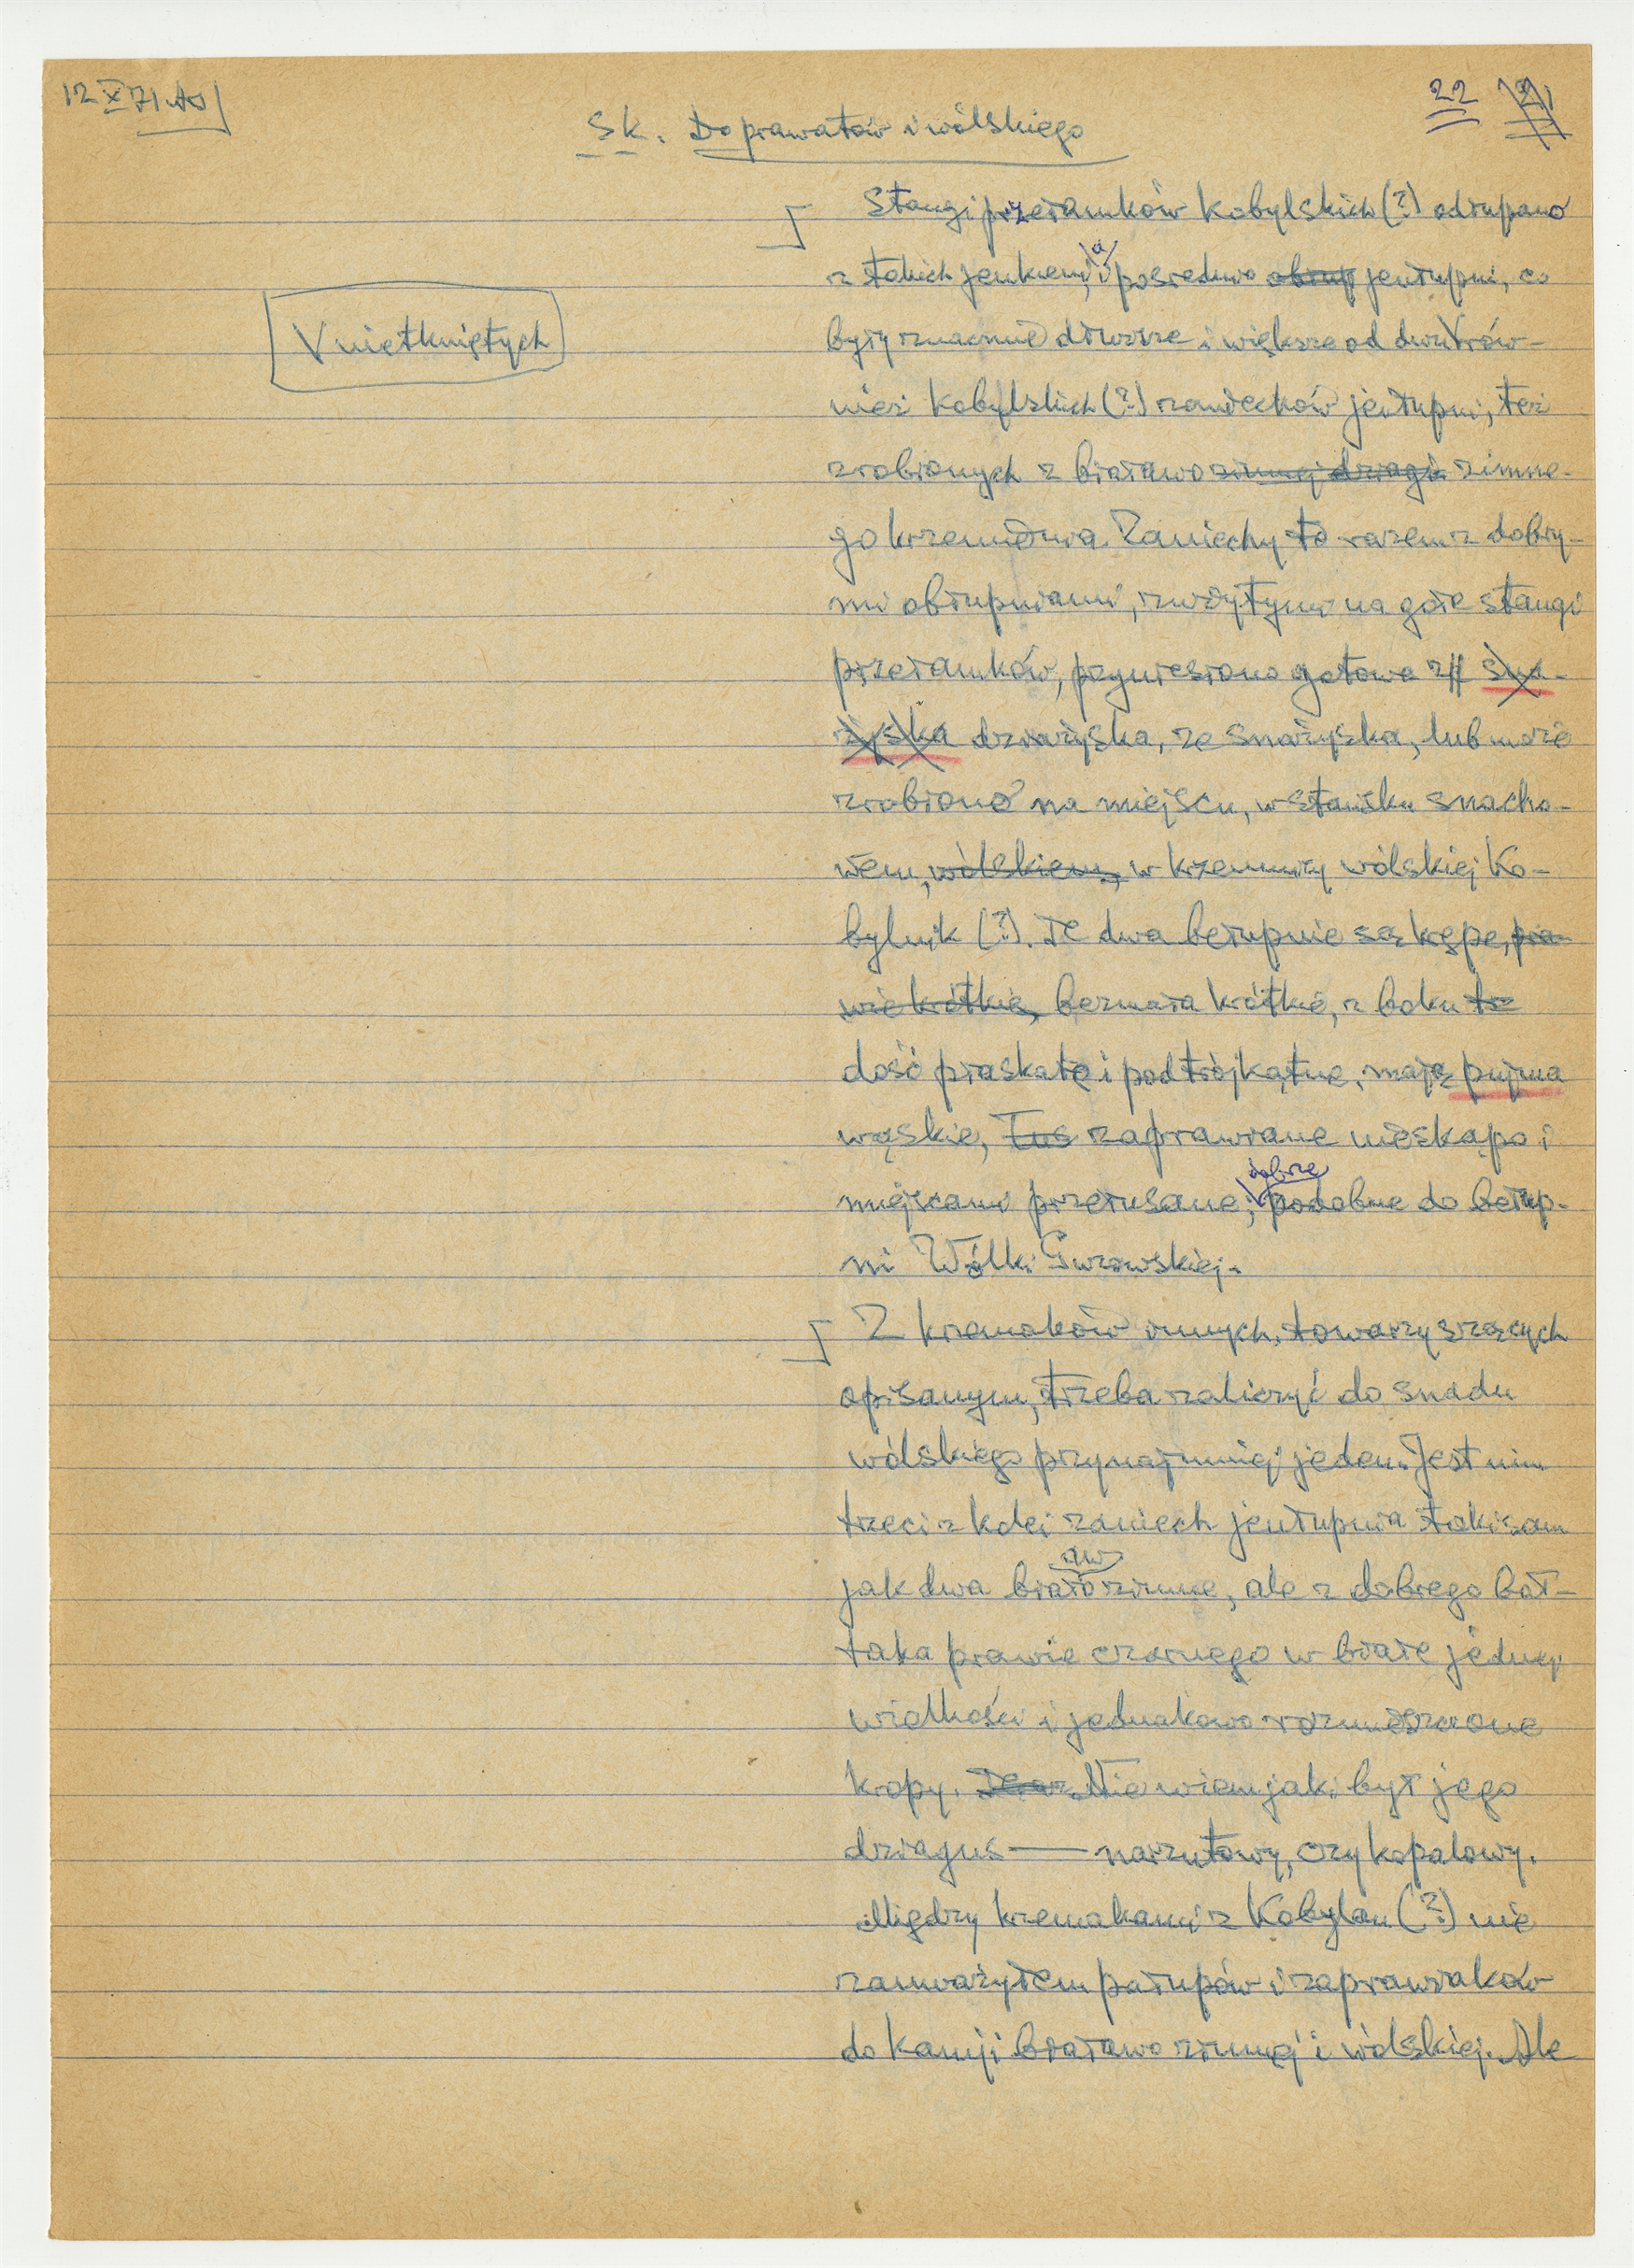 12 X 71. AS
22 21
Sk. Doprawatów i wólskiego
Stangi przełamków kobylskich (?) odłupano
z takich jenkiem, a pośrednio obłup jenłupni, co
V nietkniętych
były znacznie dłuższe i większe od dwu V rów-
nież kobylskich (?) zaniechów jenłupni, też
zrobionych z białawo zimnej dziagi zimne-
go krzemiowa. Zaniechy te razem z dobry-
mi obłupniami, zużytymi na gołe stangi
przełamków, przyniesiono gotowe z # sna-
żyska dziażyska, ze snażyska, lub może
zrobiono na miejscu, w stańsku snacho-
wem, wólskiem, w krzemnicy wólskiej Ko-
bylnik (?). Te dwa bełupnie są kępe, pra-
wie krótkie, bezmała krótkie, z boku tr
dość płaskate i podtrójkątne, mają pujma
wąskie, Łus zaprawiane nieskąpo i
miejscami przełusane, dobrze podobne do bełup-
ni Wólki Gurowskiej.
Z krzemaków innych, towarzyszących
opisanym, trzeba zaliczyć do snadu
wólskiego przynajmniej jeden. Jest nim
trzeci z kolei zaniech jenłupnia taki sam
jak dwa biaław zimne, ale z dobrego bał-
taka prawie czarnego w białe jednej
wielkości i jednakowo rozmieszczone
kropy. Nie wiem jaki był jego
dziagus — narzutowy, czy kopalowy.
Między krzemakami z Kobylan (?) nie
zauważyłem połupów i zaprawiaków
do kamji białawo zimnej i wólskiej. Ale